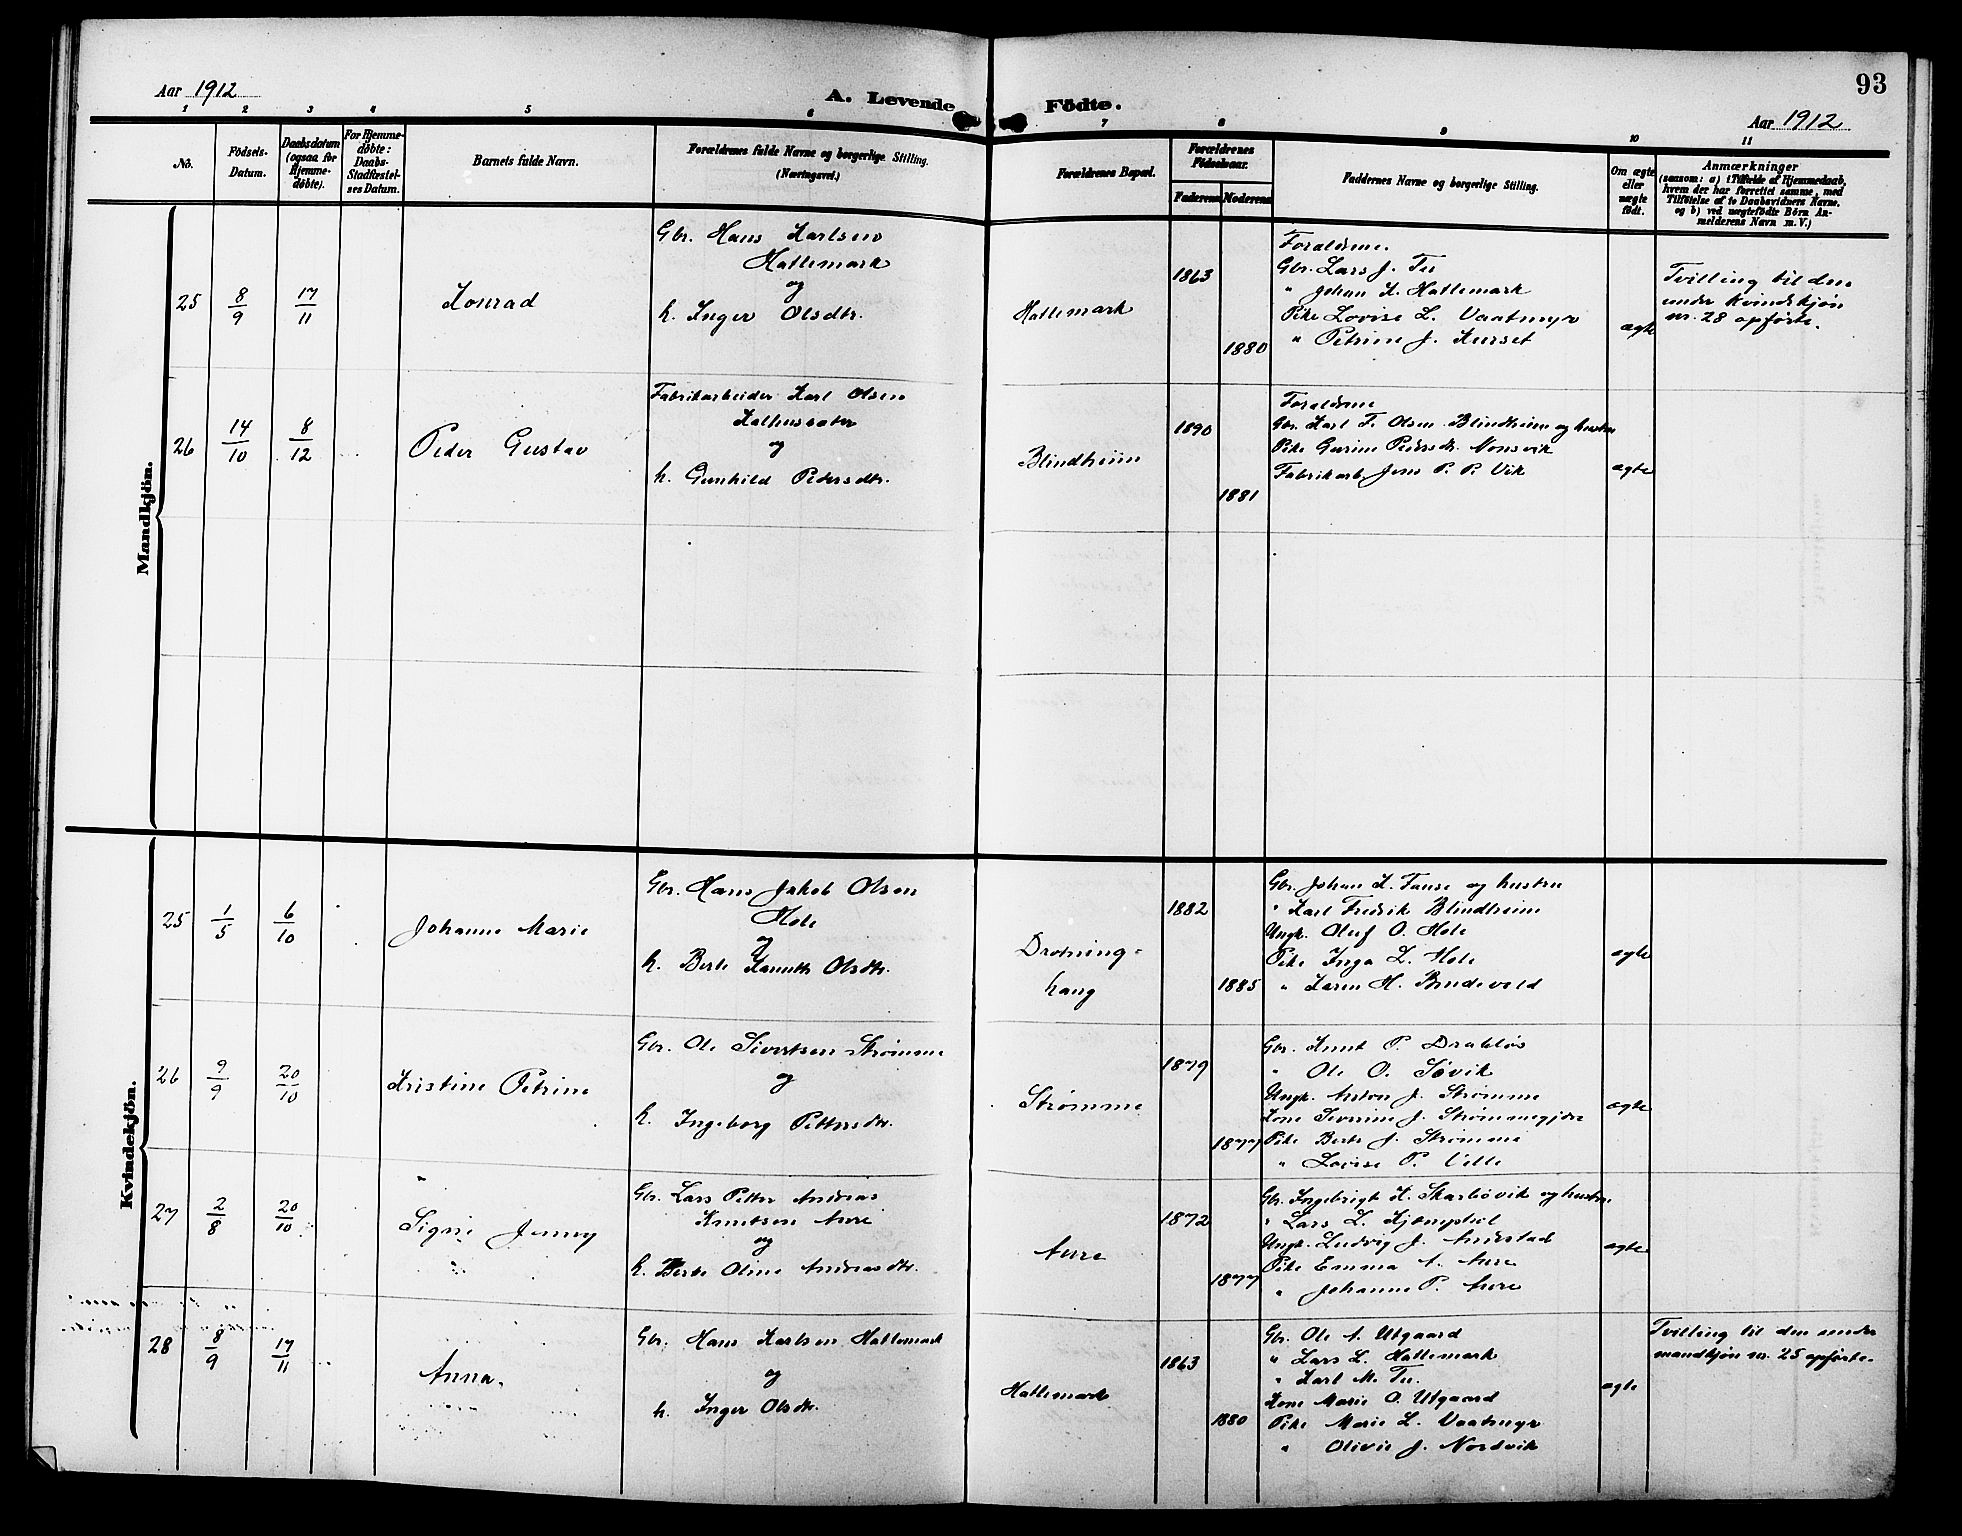 93
Aar 1912
A. Levende Födte.
Aar 1912
1 2 3 4 5 6 7 8 9 10 11
No.
Födsels-
Datum.
Daabsdatum
(ogsaa for
Hjemme-
døbte).
For Hjemme-
døbte:
Daabs-
Stadfæstel-
ses Datum.
Barnets fulde Navn.
Forældrenes fulde Navne og borgerlige Stilling.
(Næringsvei.)
Forældrenes Bopæl.
Forældrenes
Födselsaar.
Faderens
Moderens
Faddernes Navne og borgerlige Stilling.
Om ægte
eller
uægte
født.
Anmærkninger
(saasom: a) i Tilfælde af Hjemmedaab,
hvem der har forrettet samme, med
Tilføielse af to Daabsvidners Navne.
og b) ved uægtefødte Börn An-
melderens Navn m. V.)
Mandkjön.
25
8/9
17/11
Konrad
Gbr. Hans Karlsen
Hattemark
og
h. Inger Olsdtr.
Hattemark
1863
1880
Forældrene.
Gbr. Lars J. Tu
" Johan K. Hattemark
Pike Lovise L. Vaatmyr
" Petrine J. Kurset
ægte
Tvilling til den
under Kvindekjøn
nr. 28 opførte.
26
14/10
8/12
Peder Gustav
Fabrikarbeider Karl Olsen
og
h. Gunhild Pedersdtr.
Blindheim
1890
1881
Forældrene
Gbr. Karl F. Olsen Blindheim og hustru
Pike Gurine Pedersdr. Nonsvik
Fabrikarb. Jens P. P. Vik
ægte
Kvindekjön.
25
1/5
6/10
Johanne Marie
Gbr. Hans Jakob Olsen
Hole
og
h. Berte Olsdtr.
Drotning-
haug
1882
1885
Gbr. Johan K. Fause og hustru
" Karl Fredrik Blindheim
Ungk. Oluf O. Hole
Pike Inga L. Hole
" Karen H. Brudevold
ægte
26
9/9
20/10
Kristine Petrine
Gbr. Ole Sivertsen Strømme
og
h. Ingeborg Pettersdtr.
Strømme
1879
1877
Gbr. Knut P. Drabløs
" Ole O. Søvik
Ungk. Anton J. Strømme
Kone Severine J. Strømmegjære
Pike Berte J. Strømme
" Lovise P. Velle
ægte
27
2/8
20/10
Signe Jenny
Gbr. Lars Petter Andreas
Knutsen Aure
og
h. Berte Oline Andreasdtr.
Aure
1872
1877
Gbr. Ingebrigt K. Skarbøvik og hustru
" Lars L. Kjemphol
Ungk. Ludvig J. Andestad
Pike Emma A. Aure
" Johanne P. Aure
ægte
28
8/9
17/11
Anna.
Gbr. Hans Karlsen Hattemark
og
h. Inger Olsdtr.
Hattemark
1863
1880
Gbr. Ole A. Utgaard
" Lars L. Hattemark
" Karl M. Tu.
Kone Marie O. Utgaard
Pike Marie L. Vaatmyr
" Olivie J. Nordvik
ægte
Tvilling til den under
mandkjøn nr. 25 opførte.